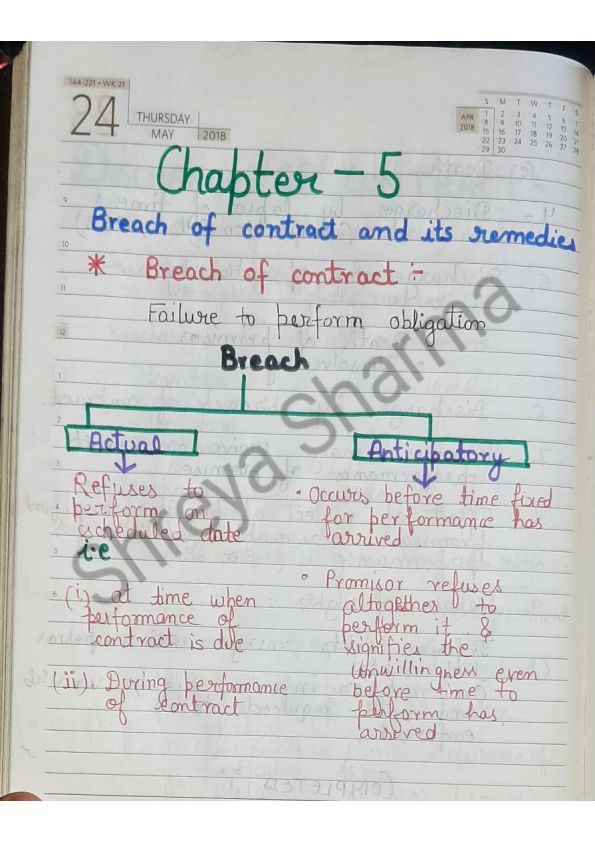 144-221 • WK 21
24
THURSDAY
MAY 2018
APR
2018
S M T W T F S
1 2 3 4 5 6 7
8 9 10 11 12 13 14
15 16 17 18 19 20 21
22 23 24 25 26 27 28
29 30
Chapter - 5
9
Breach of contract and its remedies
10
* Breach of contract :-
11
Failure to perform obligation
12
Breach
1
2
Actual
Anticipatory
3
Refuses to
4
perform on
scheduled date
5
i.e
6
(i) at time when
performance of
contract is due
(ii) During performance
of contract
• Occurs before time fixed
for performance has
arrived.
• Promisor refuses
altogether to
perform it &
signifies the
unwillingness even
before time to
perform has
arrived
Shreya Sharma